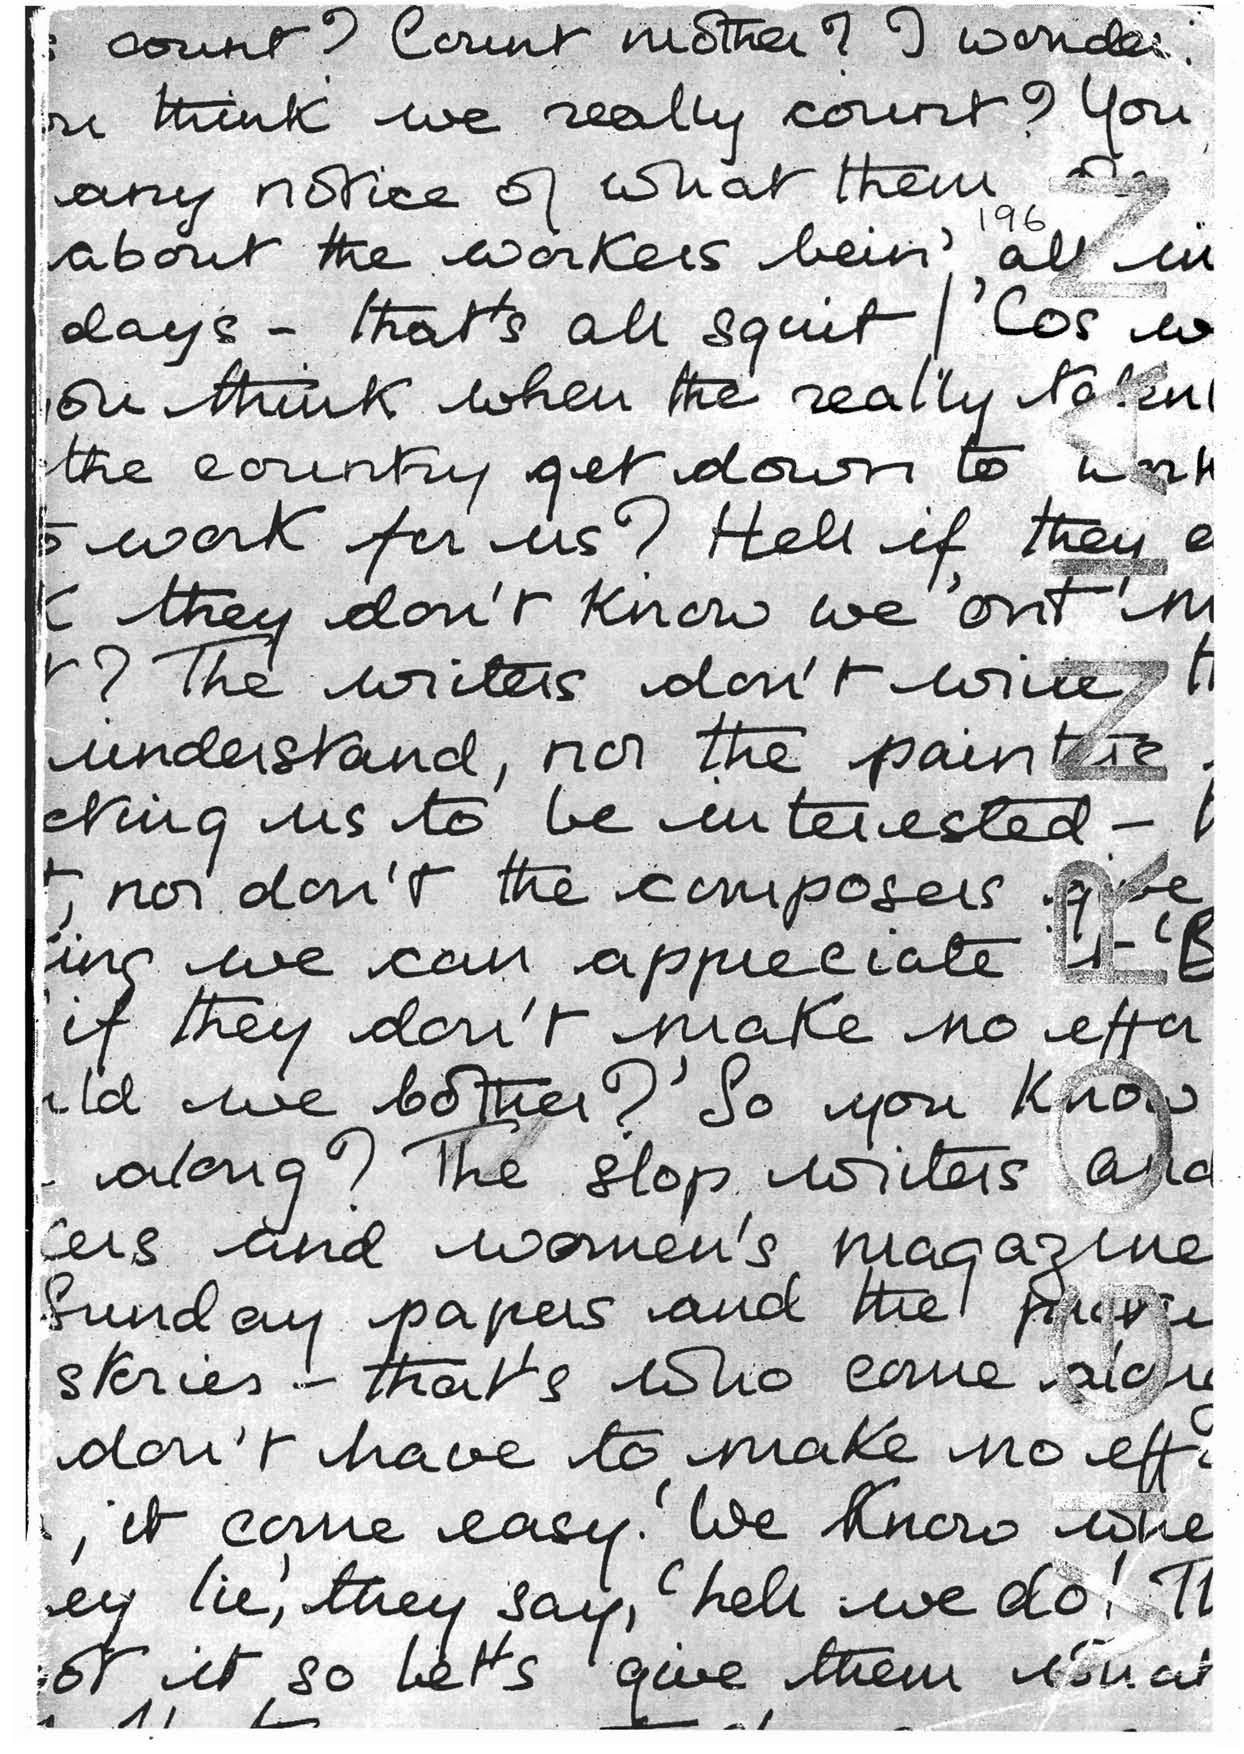 count? Count mother? I wonder.
think we really count? You
any notice of what them
196
about the workers bein' all in
days - that's all squit! 'Cos w
ou think when the really talen
the country get down to work
work for us? Hell if they
they don't know we 'ont m
t? The writers don't write th
understand, nor the painters
cting us to be interested -
t, nor don't the composers give
ing we can appreciate it. 'B
if they don't make no effor
uld we bother?' So you know
along? The slop writers and
ers and women's magazine
Sunday papers and the picture
stories - that's who come along
don't have to make no effo
, it come easy. 'We know whe
ey lie', they say, 'hell we do! Th
ot it so let's give them what
VIGORNIAN